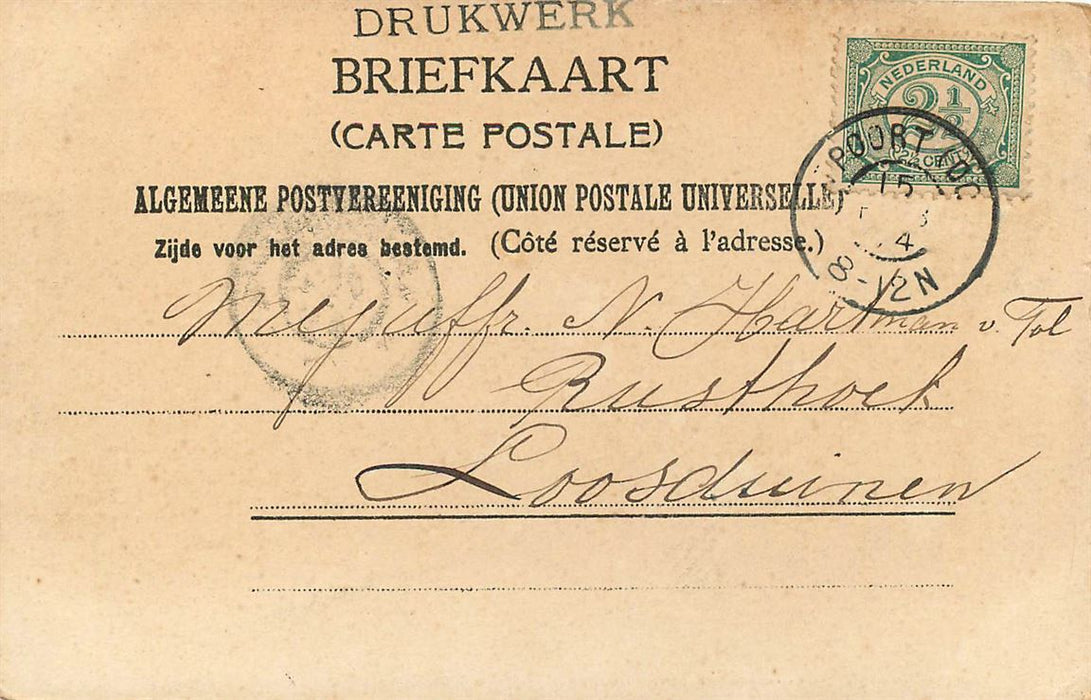 DRUKWERK
BRIEFKAART
(CARTE POSTALE)
ALGEMEENE POSTVEREENIGING (UNION POSTALE UNIVERSELLE)
Zijde voor het adres bestemd. (Côté réservé à l'adresse.)
NEDERLAND
2½
(2½ CENT)
POORT
15
4
8-12N
Mejuffr. N. Hartman v. Tol
Rusthoek
Loosduinen